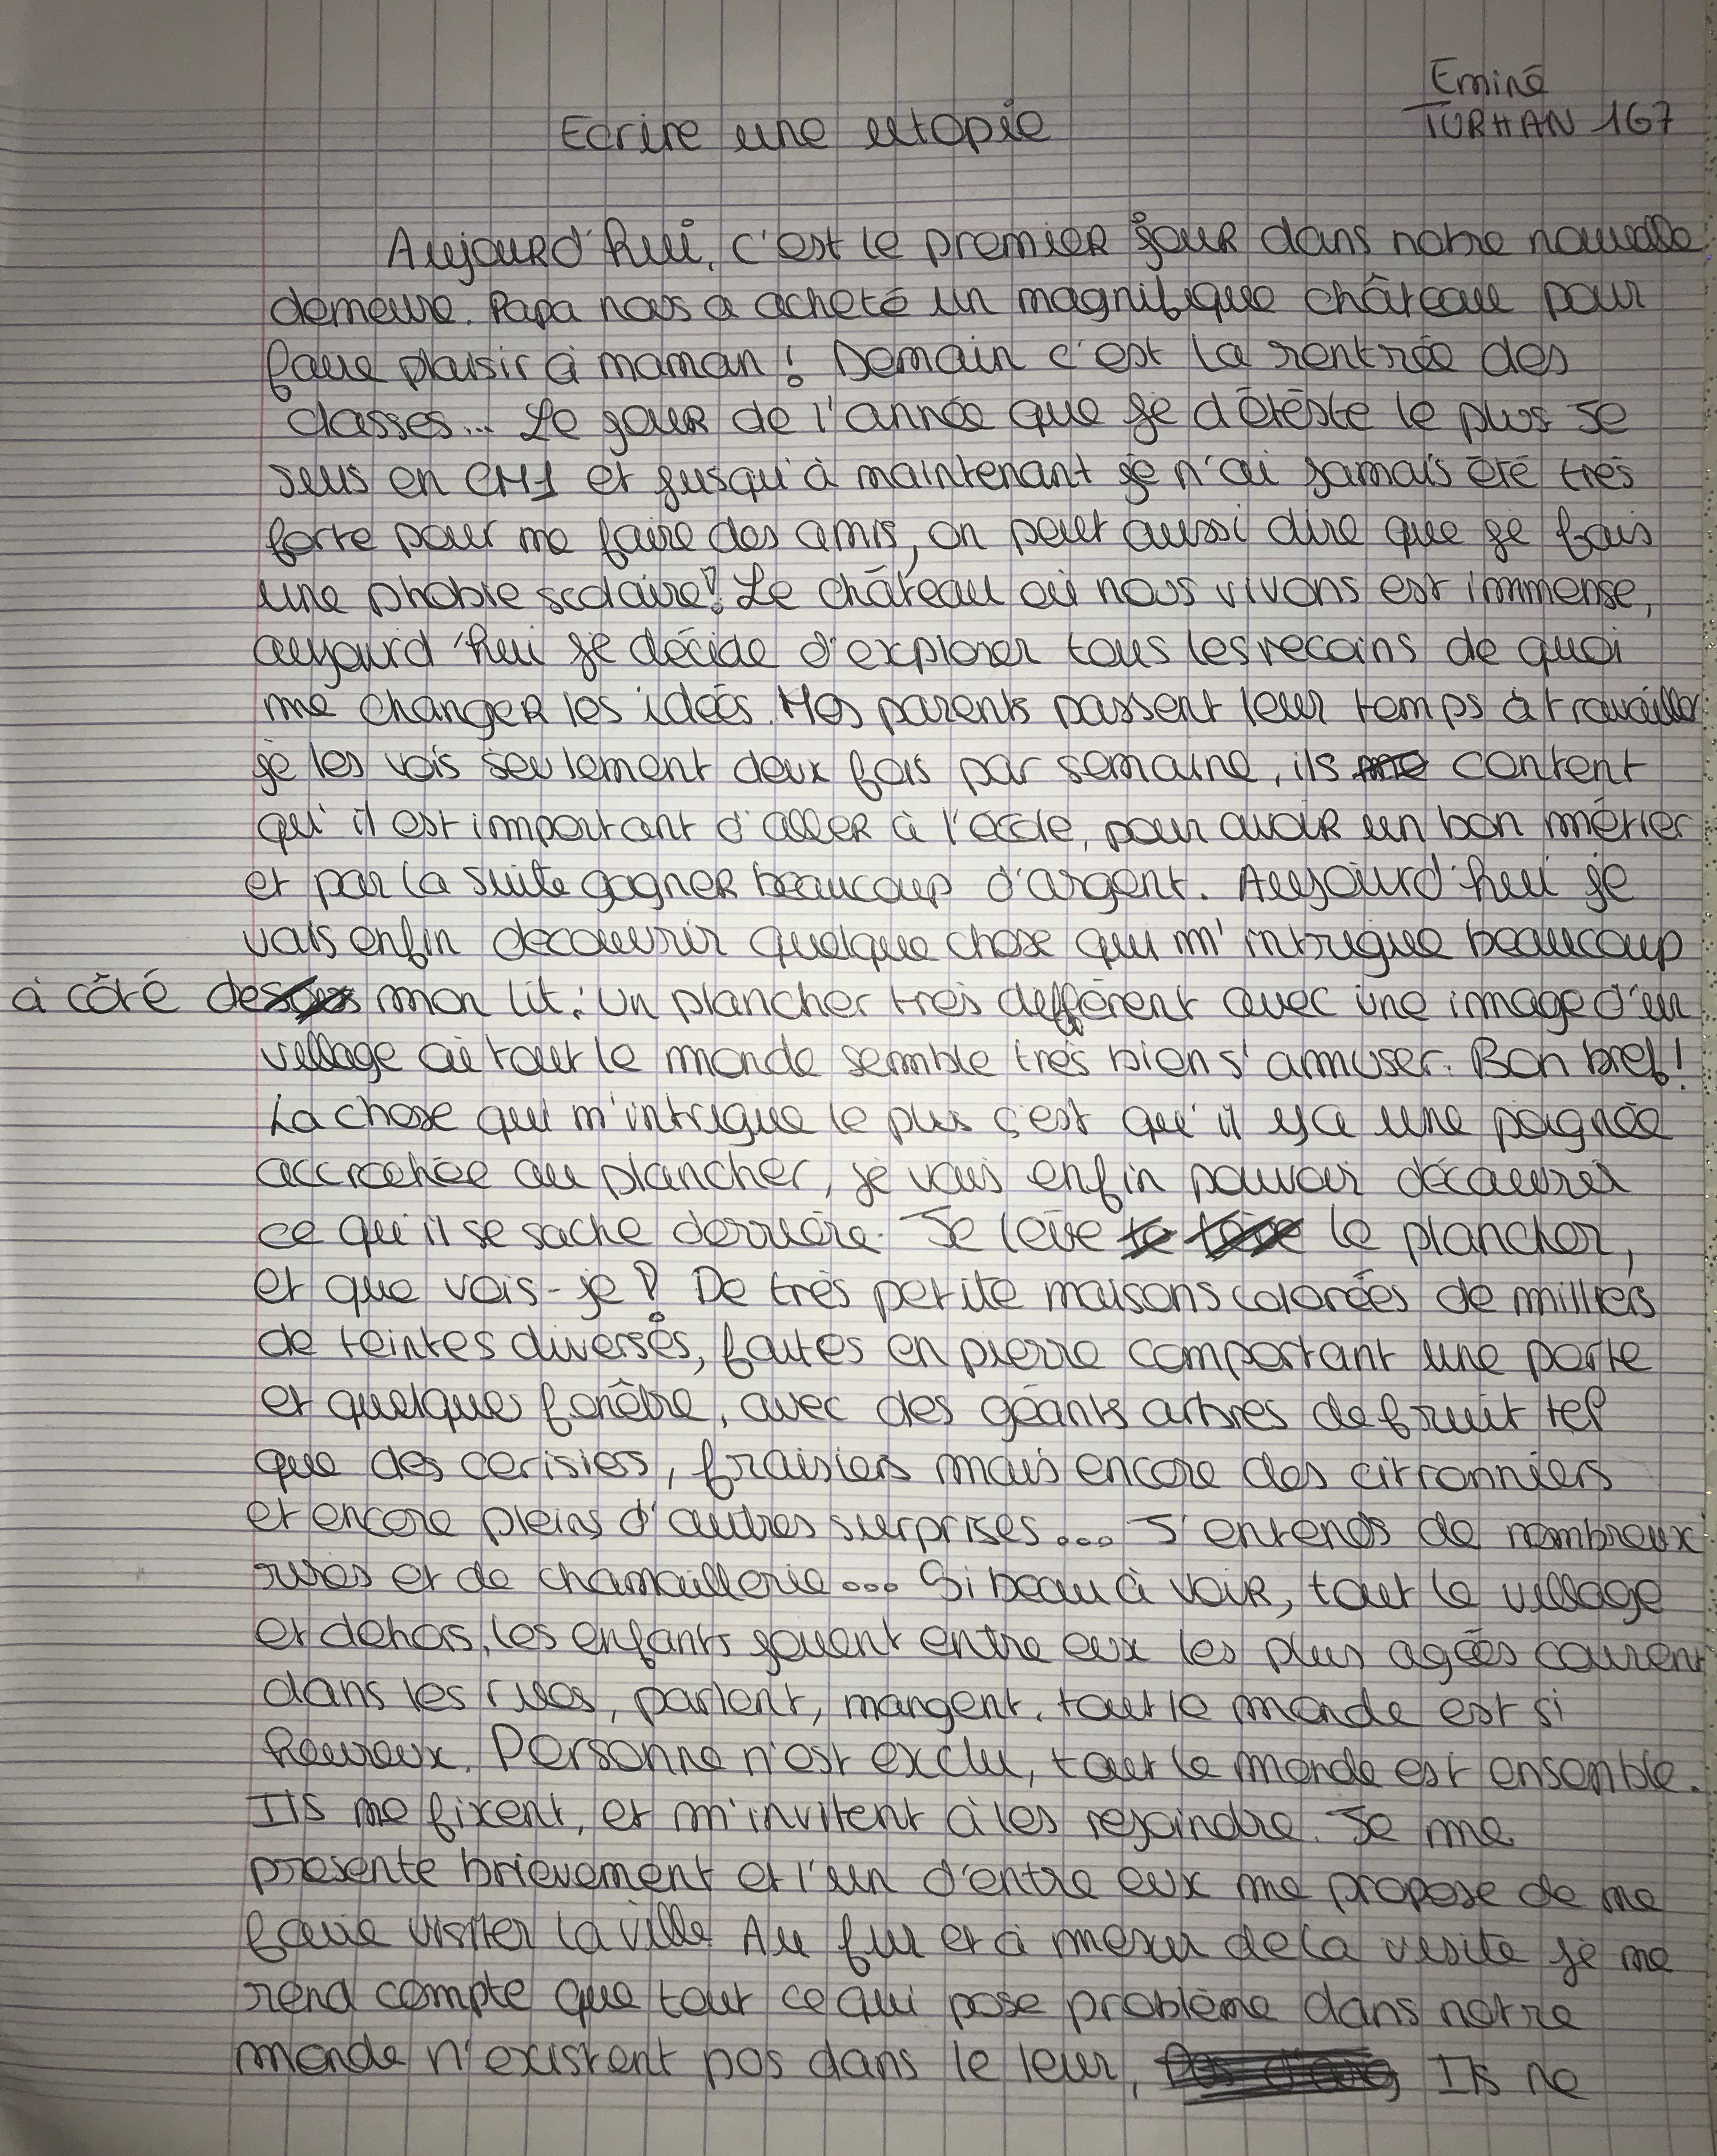 Eminé
TURHAN 167
Ecrire une utopie
Aujourd'hui, c'est le premier jour dans notre nouvelle
demeure. Papa nous a acheté un magnifique château pour
faire plaisir à maman ! Demain c'est la rentrée des
classes... Le jour de l'année que je déteste le plus Je
suis en CM1 et jusqu'à maintenant je n'ai jamais été très
forte pour me faire des amis, on peut aussi dire que je fais
une phobie scolaire! Le château où nous vivons est immense,
aujourd'hui je décide d'explorer tous les recoins de quoi
me changer les idées. Mes parents passent leur temps à travailler
je les vois seulement deux fois par semaine, ils content
qu'il est important d'aller à l'école, pour avoir un bon métier
et par la suite gagner beaucoup d'argent. Aujourd'hui je
vais enfin decouvrir quelque chose qui m'intrigue beaucoup
à côté de mon lit : Un plancher très différent avec une image d'un
village où tout le monde semble très bien s'amuser. Bon bref !
La chose qui m'intrigue le plus c'est qu'il y a une poignée
accrochée au plancher, je vais enfin pouvoir découvrir
ce qu'il se sache derrière. Je lève le plancher,
et que vois-je ? De très petite maisons colorées de milliers
de teintes diverses, faites en pierre comportant une porte
et quelques fenêtre, avec des géants arbres de fruit tel
que des cerisiers, fraisiers mais encore des citronniers
et encore pleins d'autres surprises... J'entends de nombreux
rires et de chamaillerie... Si beau à voir, tout le village
et dehors, les enfants jouent entre eux les plus agées courent
dans les rues, parlent, mangent, tout le monde est si
heureux. Personne n'est exclu, tout le monde est ensemble.
Ils me fixent, et m'invitent à les rejoindre. Je me
présente brievement et l'un d'entre eux me propose de me
faire visiter la ville. Au fur et à mesur de la visite je me
rend compte que tout ce qui pose problème dans notre
monde n'existent pas dans le leur, Ils ne